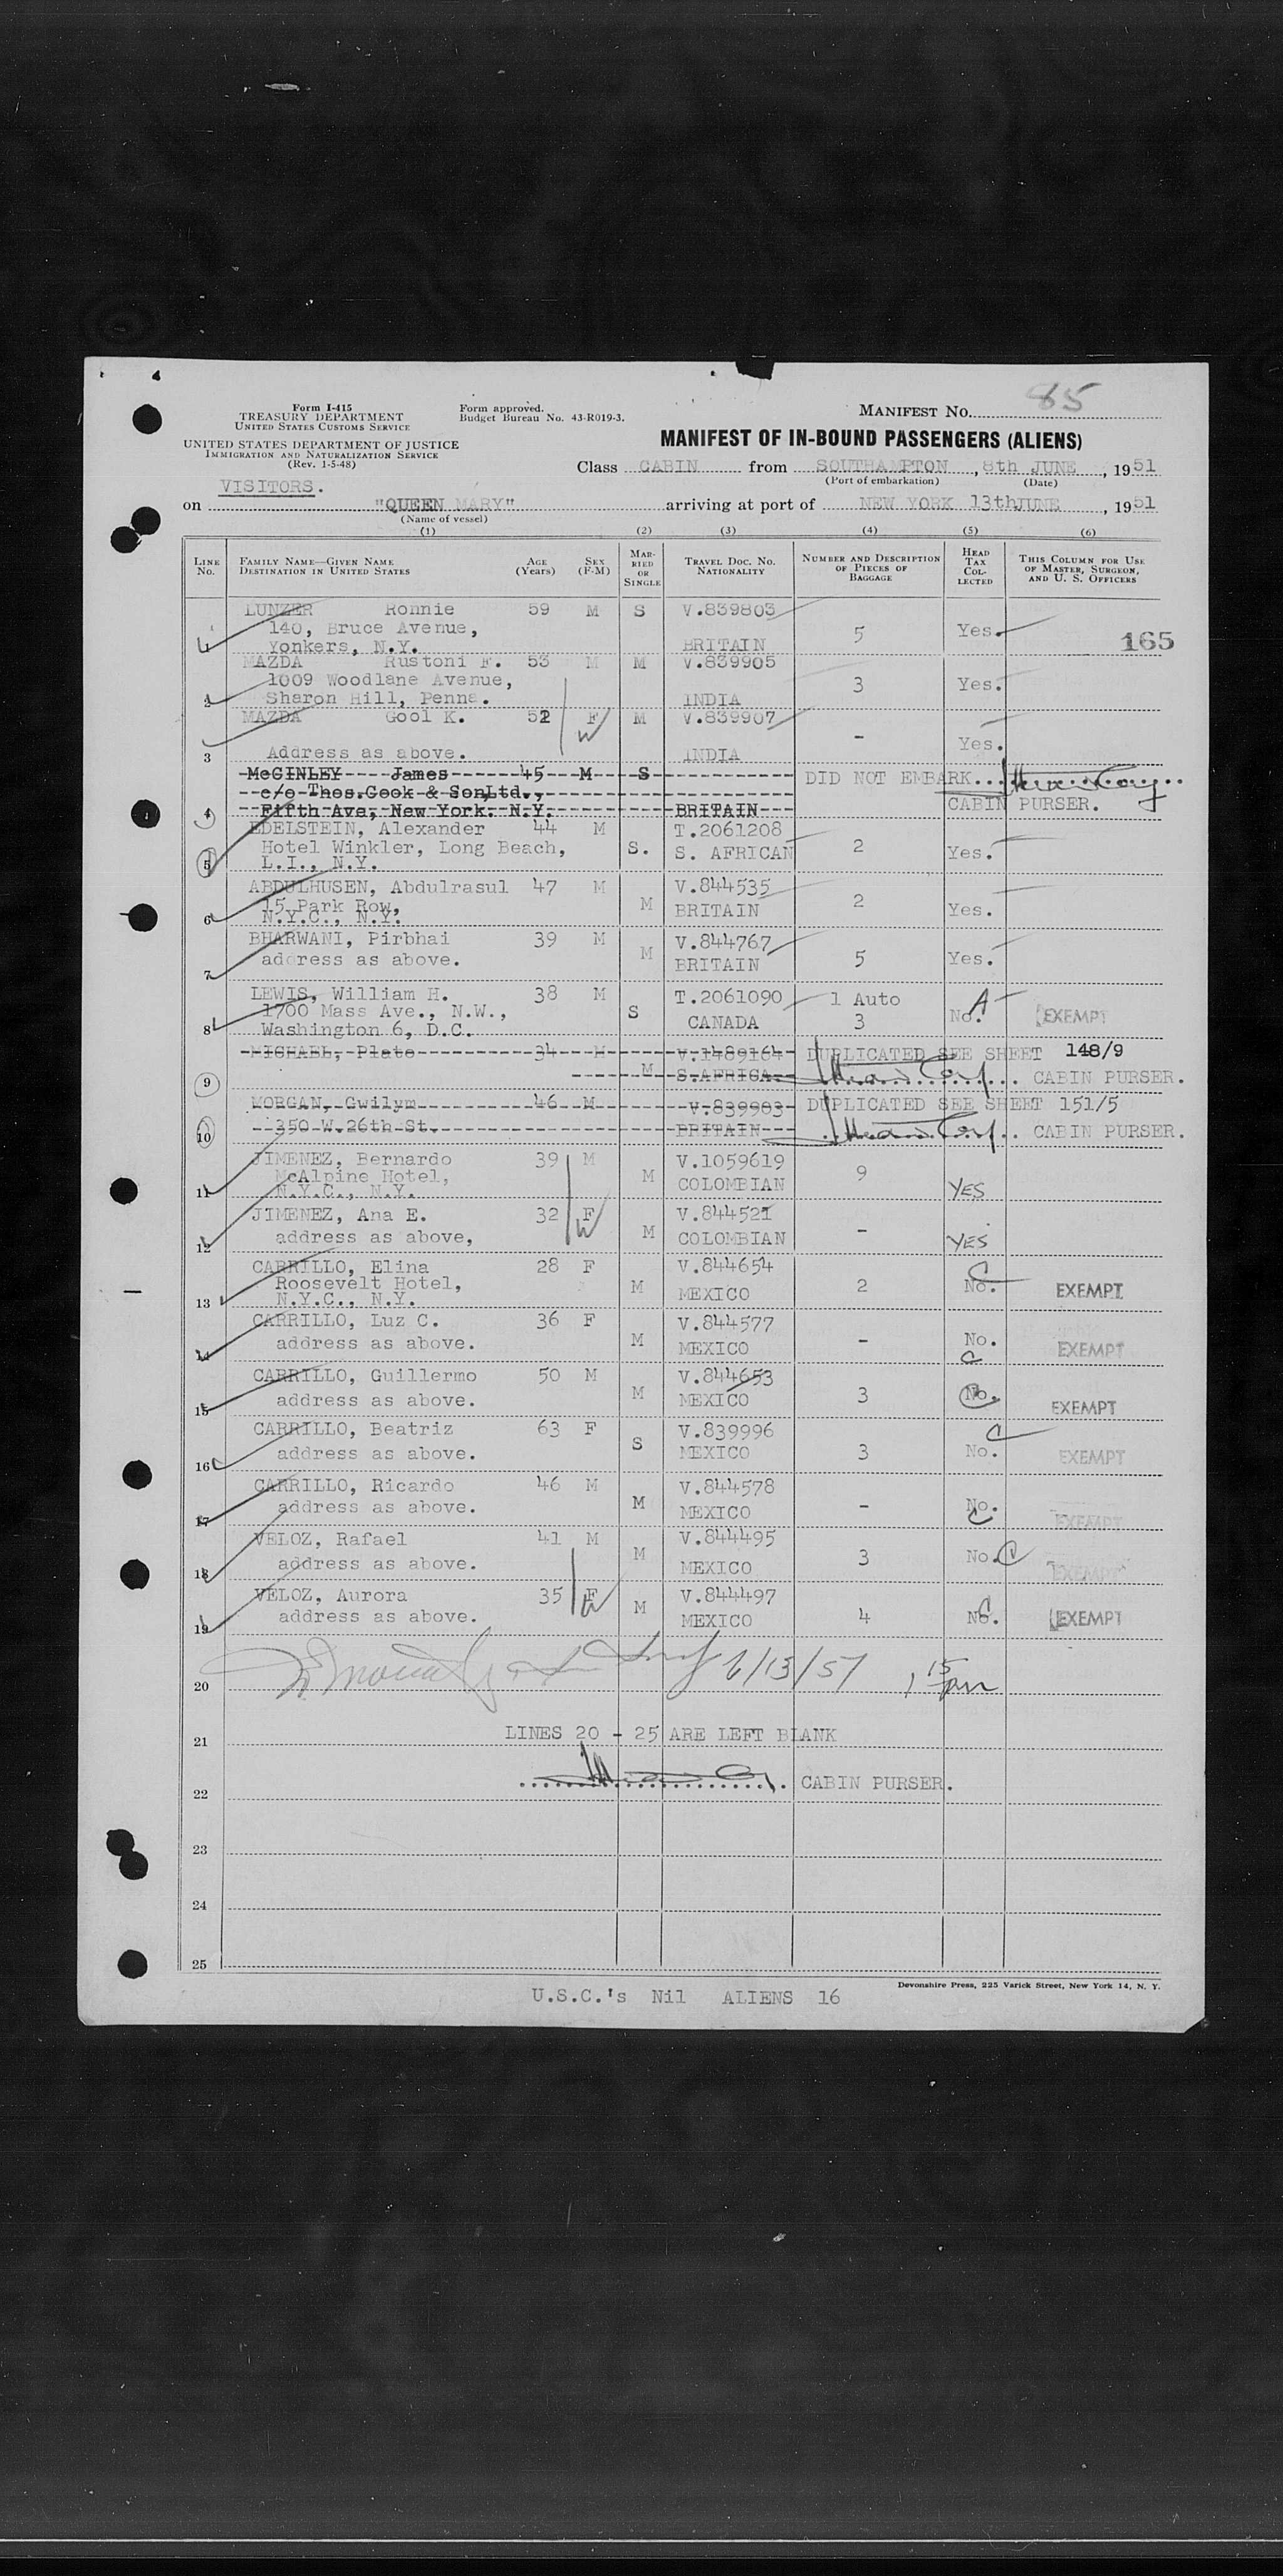 85
Form I-415
TREASURY DEPARTMENT
UNITED STATES CUSTOMS SERVICE
Form approved.
Budget Bureau No. 43-R019-3.
MANIFEST NO.
UNITED STATES DEPARTMENT OF JUSTICE
IMMIGRATION AND NATURALIZATION SERVICE
(Rev. 1-5-48)
MANIFEST OF IN-BOUND PASSENGERS (ALIENS)
Class CABIN from SOUTHAMPTON, 8th JUNE, 1951
(Port of embarkation) (Date)
VISITORS.
on "QUEEN MARY" arriving at port of NEW YORK 13th JUNE, 1951
(Name of vessel)
(1) (2) (3) (4) (5) (6)
LINE NO. FAMILY NAME—GIVEN NAME DESTINATION IN UNITED STATES AGE (YEARS) SEX (F-M) MARRIED OR SINGLE TRAVEL DOC. NO. NATIONALITY NUMBER AND DESCRIPTION OF PIECES OF BAGGAGE HEAD TAX COLLECTED THIS COLUMN FOR USE OF MASTER, SURGEON, AND U. S. OFFICERS
LUNZER Ronnie 59 M S V.839803
140, Bruce Avenue, 5 Yes. 165
1 Yonkers, N.Y. BRITAIN
MAZDA Rustoni F. 53 M M V.839905
1009 Woodlane Avenue, 3 Yes.
2 Sharon Hill, Penna. INDIA
MAZDA Gool K. 52 F M V.839907
W - Yes.
3 Address as above. INDIA
McGINLEY James 45 M S DID NOT EMBARK
c/o Thos.Cook & Son,Ltd.,
4 Fifth Ave, New York. N.Y. BRITAIN CABIN PURSER.
EDELSTEIN, Alexander 44 M T.2061208
Hotel Winkler, Long Beach, S. S. AFRICAN 2 Yes.
5 L.I., N.Y.
ABDULHUSEN, Abdulrasul 47 M V.844535
15 Park Row, M BRITAIN 2 Yes.
6 N.Y.C., N.Y.
BHARWANI, Pirbhai 39 M V.844767
7 address as above. M BRITAIN 5 Yes.
LEWIS, William H. 38 M T.2061090 1 Auto A
1700 Mass Ave., N.W., S CANADA 3 No. EXEMPT
8 Washington 6, D.C.
MICHAEL, Plato 34 M V.1489164 DUPLICATED SEE SHEET 148/9
9 M S.AFRICA CABIN PURSER.
MORGAN, Gwilym 46 M V.839903 DUPLICATED SEE SHEET 151/5
10 350 W.26th St. BRITAIN CABIN PURSER.
JIMENEZ, Bernardo 39 M V.1059619
McAlpine Hotel, M COLOMBIAN 9 YES
11 N.Y.C., N.Y.
JIMENEZ, Ana E. 32 F V.844521
12 address as above, W M COLOMBIAN - YES
CARRILLO, Elina 28 F V.844654 C
Roosevelt Hotel, M MEXICO 2 No. EXEMPT
13 N.Y.C., N.Y.
CARRILLO, Luz C. 36 F V.844577
14 address as above. M MEXICO - No. C EXEMPT
CARRILLO, Guillermo 50 M V.844653
15 address as above. M MEXICO 3 No. C EXEMPT
CARRILLO, Beatriz 63 F V.839996 C
16 address as above. S MEXICO 3 No. EXEMPT
CARRILLO, Ricardo 46 M V.844578
17 address as above. M MEXICO - No. C EXEMPT
VELOZ, Rafael 41 M V.844495
18 address as above. M MEXICO 3 No. C EXEMPT
VELOZ, Aurora 35 F V.844497
19 address as above. W M MEXICO 4 No. C EXEMPT
20 6/13/51 1 15 pm
21 LINES 20 - 25 ARE LEFT BLANK
22 CABIN PURSER.
23
24
25
Devonshire Press, 225 Varick Street, New York 14, N. Y.
U.S.C.'s Nil ALIENS 16